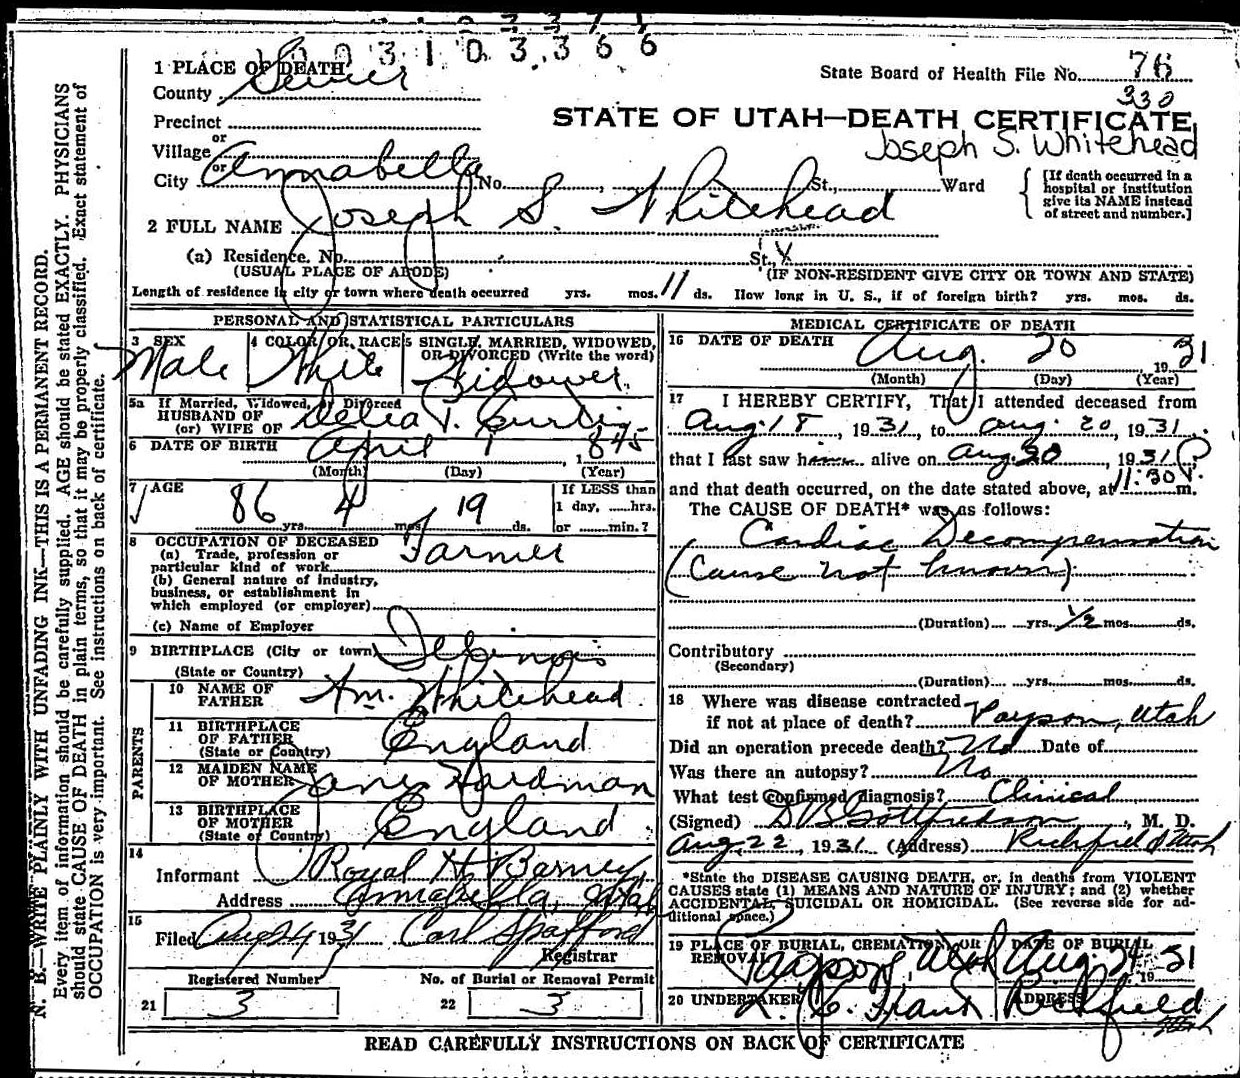 0 0 3 1 0 3 3 6 6
1 PLACE OF DEATH
County Sevier
State Board of Health File No. 76
330
Precinct
STATE OF UTAH—DEATH CERTIFICATE
Joseph S. Whitehead
or
Village
or
City Annabella No. , St., Ward
[If death occurred in a hospital or institution give its NAME instead of street and number.]
2 FULL NAME Joseph S. Whitehead
(a) Residence. No. St., X
(USUAL PLACE OF ABODE) (IF NON-RESIDENT GIVE CITY OR TOWN AND STATE)
Length of residence in city or town where death occurred yrs. mos. 11 ds. How long in U. S., if of foreign birth? yrs. mos. ds.
PERSONAL AND STATISTICAL PARTICULARS
3 SEX
Male
4 COLOR OR RACE
White
5 SINGLE, MARRIED, WIDOWED, OR DIVORCED (Write the word)
Widower.
5a If Married, Widowed, or Divorced
HUSBAND OF
(or) WIFE OF Curtis
6 DATE OF BIRTH April 1 1845
(Month) (Day) (Year)
7 AGE
86 yrs. 4 mos. 19 ds.
If LESS than
1 day, ......hrs.
or ......min.?
8 OCCUPATION OF DECEASED
(a) Trade, profession or
particular kind of work Farmer
(b) General nature of industry,
business, or establishment in
which employed (or employer)
(c) Name of Employer
9 BIRTHPLACE (City or town) Illinois
(State or Country)
PARENTS
10 NAME OF FATHER Wm. Whitehead
11 BIRTHPLACE OF FATHER England
(State or Country)
12 MAIDEN NAME OF MOTHER Jane Hardman
13 BIRTHPLACE OF MOTHER England
(State or Country)
14
Informant Royal H. Barney
Address Annabella, Utah
15
Filed Aug 24 1931 Carl Spafford
Registrar
Registered Number
21 3
No. of Burial or Removal Permit
22 3
MEDICAL CERTIFICATE OF DEATH
16 DATE OF DEATH Aug. 20 1931
(Month) (Day) (Year)
17 I HEREBY CERTIFY, That I attended deceased from
Aug. 18, 1931, to Aug. 20, 1931
that I last saw h alive on Aug. 20, 1931
and that death occurred, on the date stated above, at 11:30 P m.
The CAUSE OF DEATH* was as follows:
Cardiac Decompensation
(Cause not known)
(Duration) yrs. 1/2 mos. ds.
Contributory
(Secondary)
(Duration) yrs. mos. ds.
18 Where was disease contracted
if not at place of death? Payson, Utah
Did an operation precede death? No Date of
Was there an autopsy? No
What test confirmed diagnosis? Clinical
(Signed) D B Gottfredson, M. D.
Aug. 22, 1931 (Address) Richfield Utah
*State the DISEASE CAUSING DEATH, or, in deaths from VIOLENT
CAUSES state (1) MEANS AND NATURE OF INJURY; and (2) whether
ACCIDENTAL, SUICIDAL OR HOMICIDAL. (See reverse side for ad-
ditional space.)
19 PLACE OF BURIAL, CREMATION, OR REMOVAL
Payson, Utah
DATE OF BURIAL
Aug. 24 1931
20 UNDERTAKER
ADDRESS
Richfield
Utah
READ CAREFULLY INSTRUCTIONS ON BACK OF CERTIFICATE
N. B.—WRITE PLAINLY WITH UNFADING INK—THIS IS A PERMANENT RECORD.
Every item of information should be carefully supplied. AGE should be stated EXACTLY. PHYSICIANS
should state CAUSE OF DEATH in plain terms, so that it may be properly classified. Exact statement of
OCCUPATION is very important. See instructions on back of certificate.